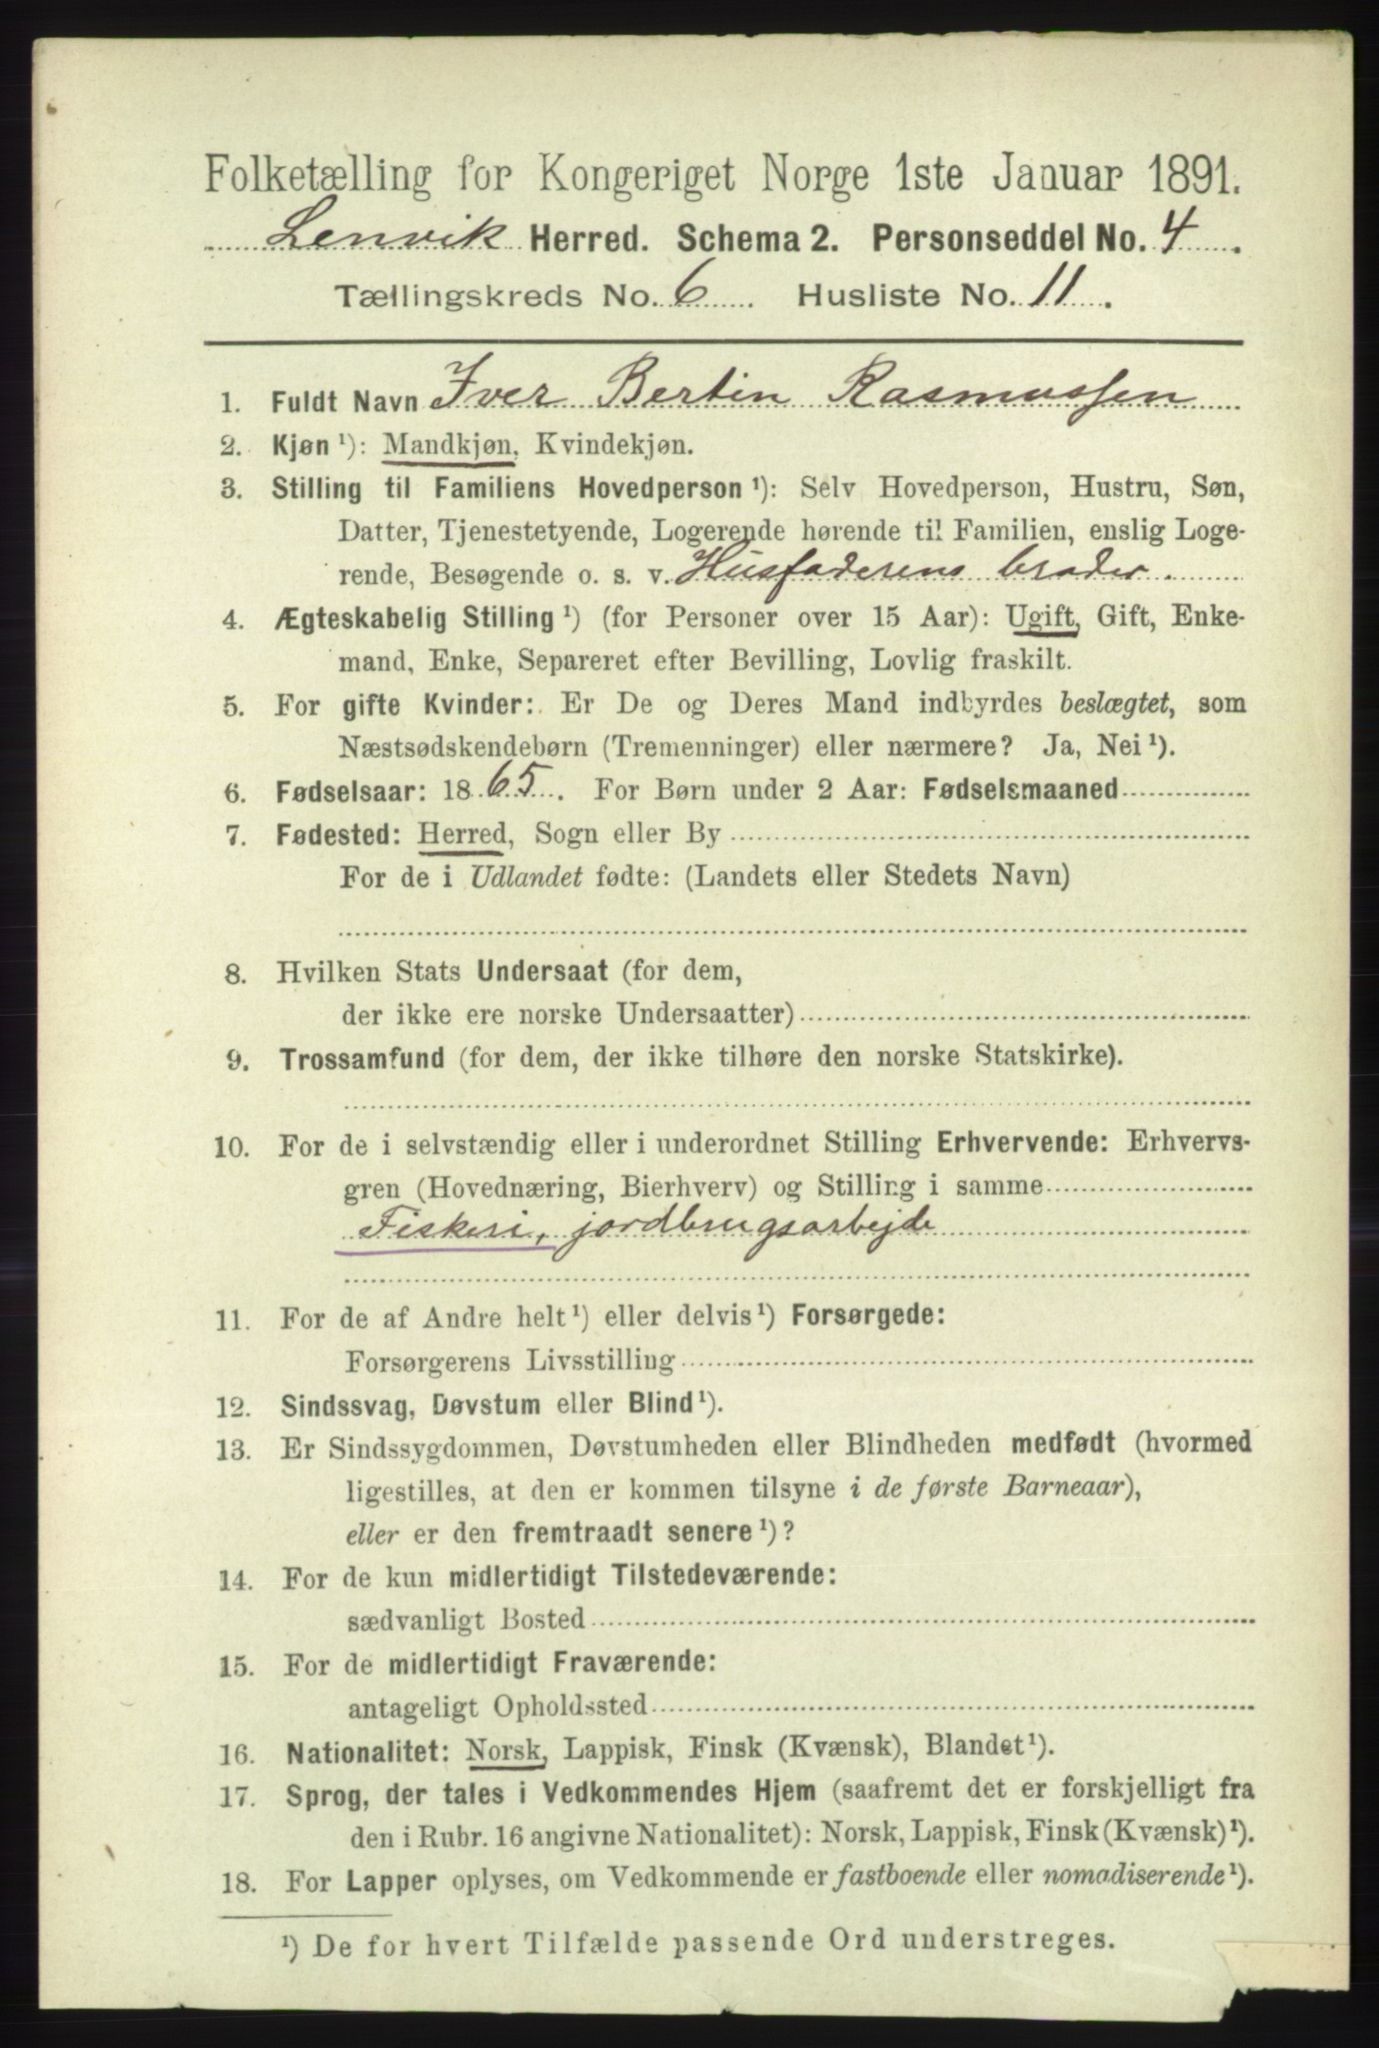 Folketælling for Kongeriget Norge 1ste Januar 1891.
Lenvik Herred. Schema 2. Personseddel No. 4.
Tællingskreds No. 6. Husliste No. 11.
1. Fuldt Navn Iver Bertin Rasmussen
2. Kjøn ¹): Mandkjøn, Kvindekjøn.
3. Stilling til Familiens Hovedperson ¹): Selv Hovedperson, Hustru, Søn,
Datter, Tjenestetyende, Logerende hørende til Familien, enslig Loge-
rende, Besøgende o. s. v. Husfaderens broder.
4. Ægteskabelig Stilling ¹) (for Personer over 15 Aar): Ugift, Gift, Enke-
mand, Enke, Separeret efter Bevilling, Lovlig fraskilt.
5. For gifte Kvinder: Er De og Deres Mand indbyrdes beslægtet, som
Næstsødskendebørn (Tremenninger) eller nærmere? Ja, Nei ¹).
6. Fødselsaar: 1865. For Børn under 2 Aar: Fødselsmaaned
7. Fødested: Herred, Sogn eller By
For de i Udlandet fødte: (Landets eller Stedets Navn)
8. Hvilken Stats Undersaat (for dem,
der ikke ere norske Undersaatter)
9. Trossamfund (for dem, der ikke tilhøre den norske Statskirke).
10. For de i selvstændig eller i underordnet Stilling Erhvervende: Erhvervs-
gren (Hovednæring, Bierhverv) og Stilling i samme
Fiskeri, jordbrugsarbejde
11. For de af Andre helt ¹) eller delvis ¹) Forsørgede:
Forsørgerens Livsstilling
12. Sindssvag, Døvstum eller Blind ¹).
13. Er Sindssygdommen, Døvstumheden eller Blindheden medfødt (hvormed
ligestilles, at den er kommen tilsyne i de første Barneaar),
eller er den fremtraadt senere ¹)?
14. For de kun midlertidigt Tilstedeværende:
sædvanligt Bosted
15. For de midlertidigt Fraværende:
antageligt Opholdssted
16. Nationalitet: Norsk, Lappisk, Finsk (Kvænsk), Blandet ¹).
17. Sprog, der tales i Vedkommendes Hjem (saafremt det er forskjelligt fra
den i Rubr. 16 angivne Nationalitet): Norsk, Lappisk, Finsk (Kvænsk) ¹).
18. For Lapper oplyses, om Vedkommende er fastboende eller nomadiserende ¹).
¹) De for hvert Tilfælde passende Ord understreges.